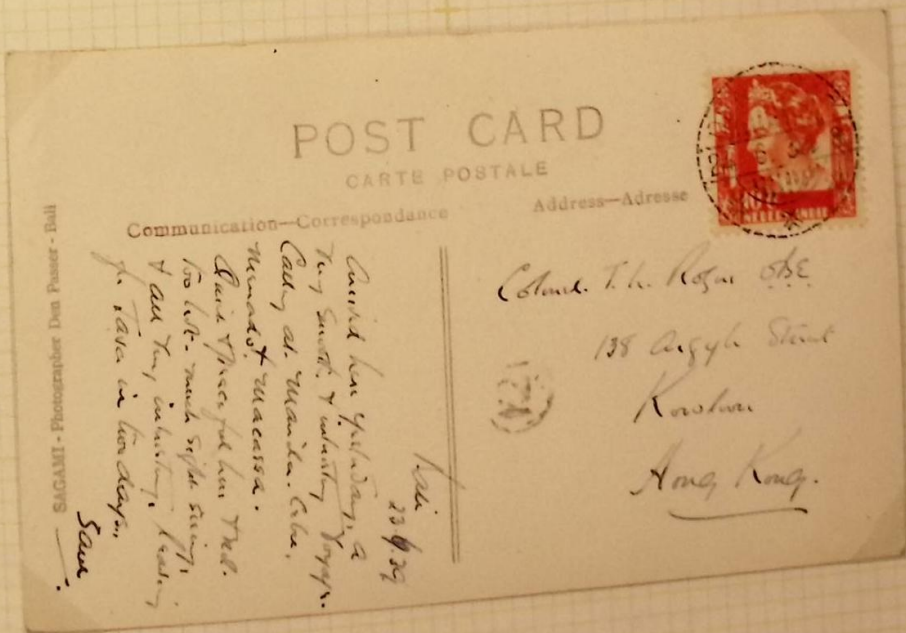 POST CARD
CARTE POSTALE
Communication—Correspondance
Address—Adresse
SAGAMI - Photographer Den Passer - Bali
Bali
23.9.39
Arrived here yesterday, a
very smooth & interesting voyage.
Calling at Manila, Cebu,
Menado & Macassa.
Quiet & peaceful here &
too hot. much sight seeing,
& all very interesting. Leaving
for Java in two days.
Colonel T. h. OBE
138 Argyle Street
Kowloon
Hong Kong.